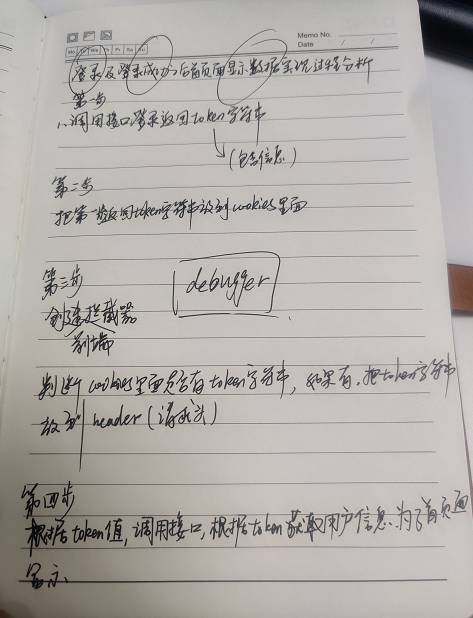 Memo No.
Mo Tu We Th Fr Sa Su
Date / /
登录及登录成功后首页面显示数据实现过程分析
第一步
1、调用接口登录返回token字符串
(包含信息)
第二步
把第一步返回token字符串放到cookies里面
第三步
debugger
创建拦截器
前端
判断cookies里面是否有token字符串,如果有,把token字符串
放到header(请求头)
第四步
根据token值,调用接口,根据token获取用户信息、为了首页面
显示、